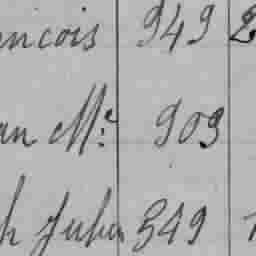 ncois 949 2
an Mc 903
h Jules 549